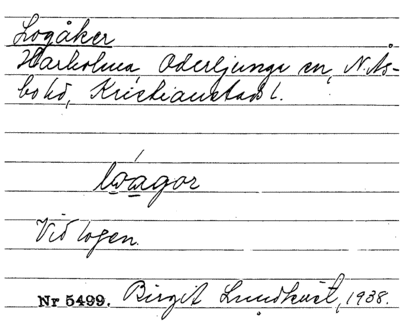 Logåker
Harholma, Oderljunga sn, N. Ås-
bo hd, Kristianstads l.
lωagor
Vid logen.
Nr 5499. Birgit Lundkvist, 1938.